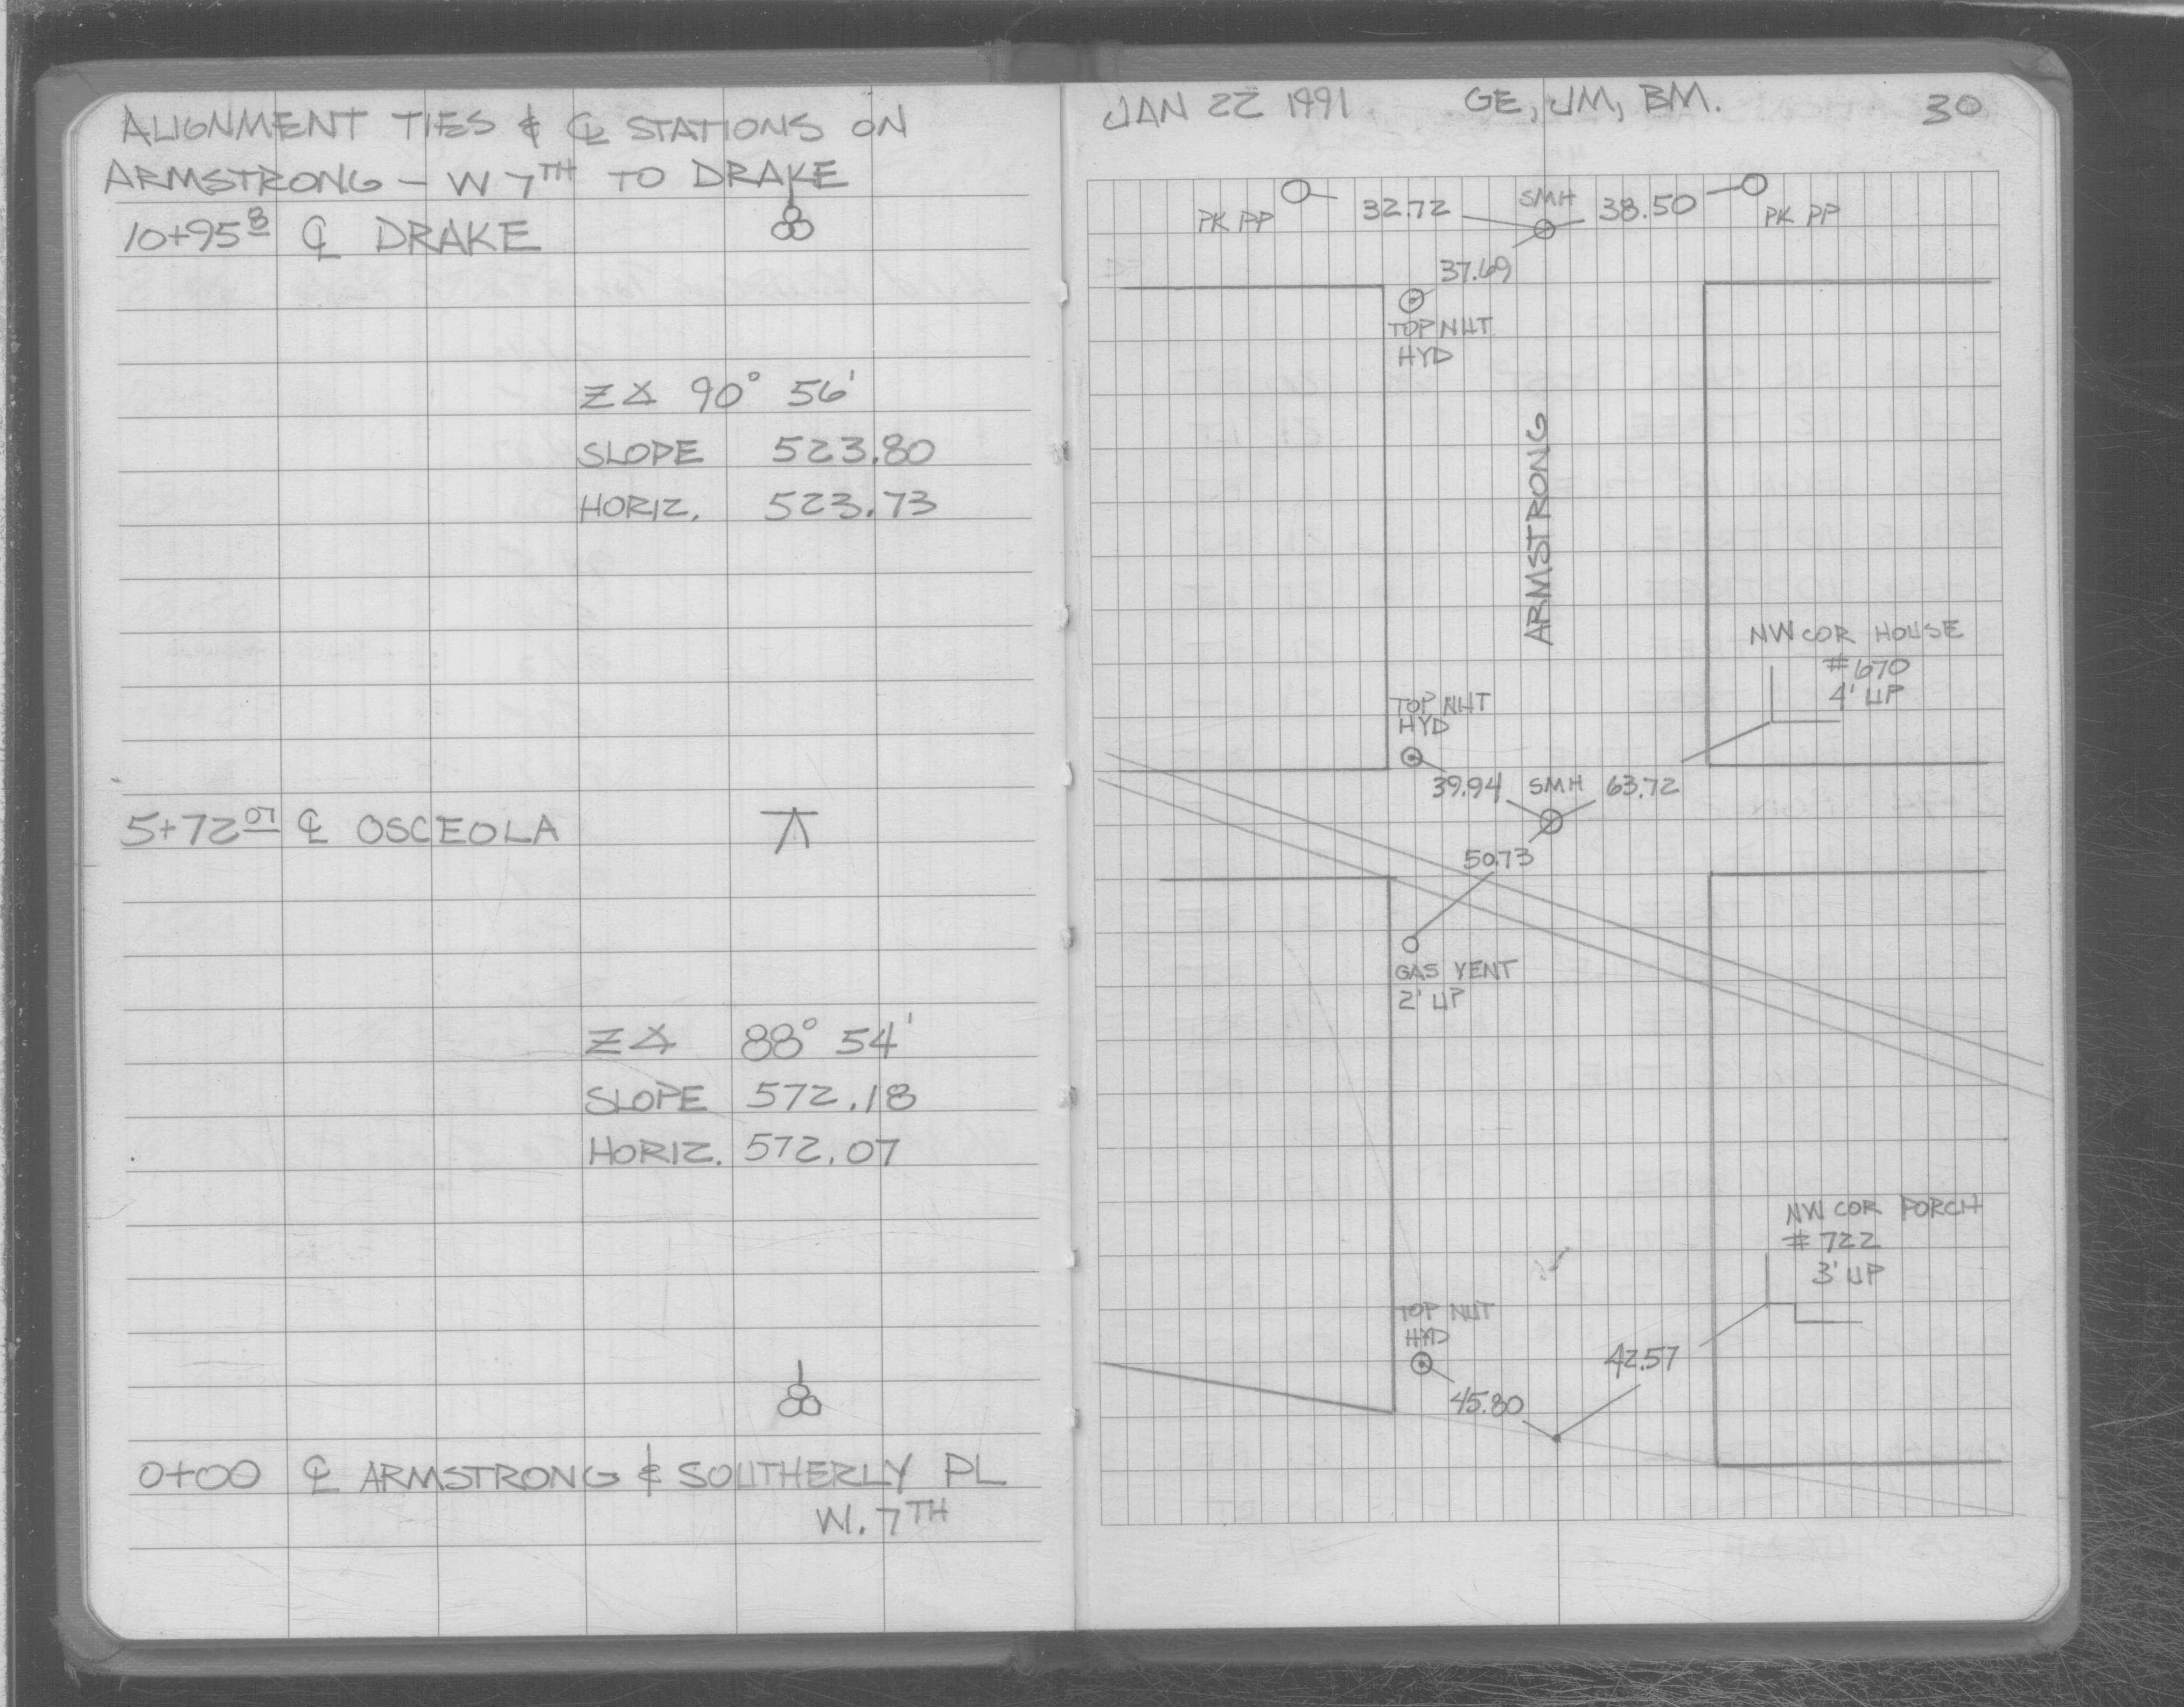 ALIGNMENT TIES & ℄ STATIONS ON
ARMSTRONG – W 7TH TO DRAKE
10+95⁸ ℄ DRAKE
Z∡ 90° 56'
SLOPE 523.80
HORIZ. 523.73
5+72⁰⁷ ℄ OSCEOLA
Z∡ 88° 54'
SLOPE 572.18
HORIZ. 572.07
0+00 ℄ ARMSTRONG & SOUTHERLY PL
W. 7TH
JAN 22 1991 GE, JM, BM. 30
PK PP 32.72 SMH 38.50 PK PP
37.69
TOP NUT
HYD
ARMSTRONG
NW COR HOUSE
#670
4' UP
TOP NUT
HYD
39.94 SMH 63.72
50.73
GAS VENT
2' UP
NW COR PORCH
#722
3' UP
TOP NUT
HYD
42.57
45.80